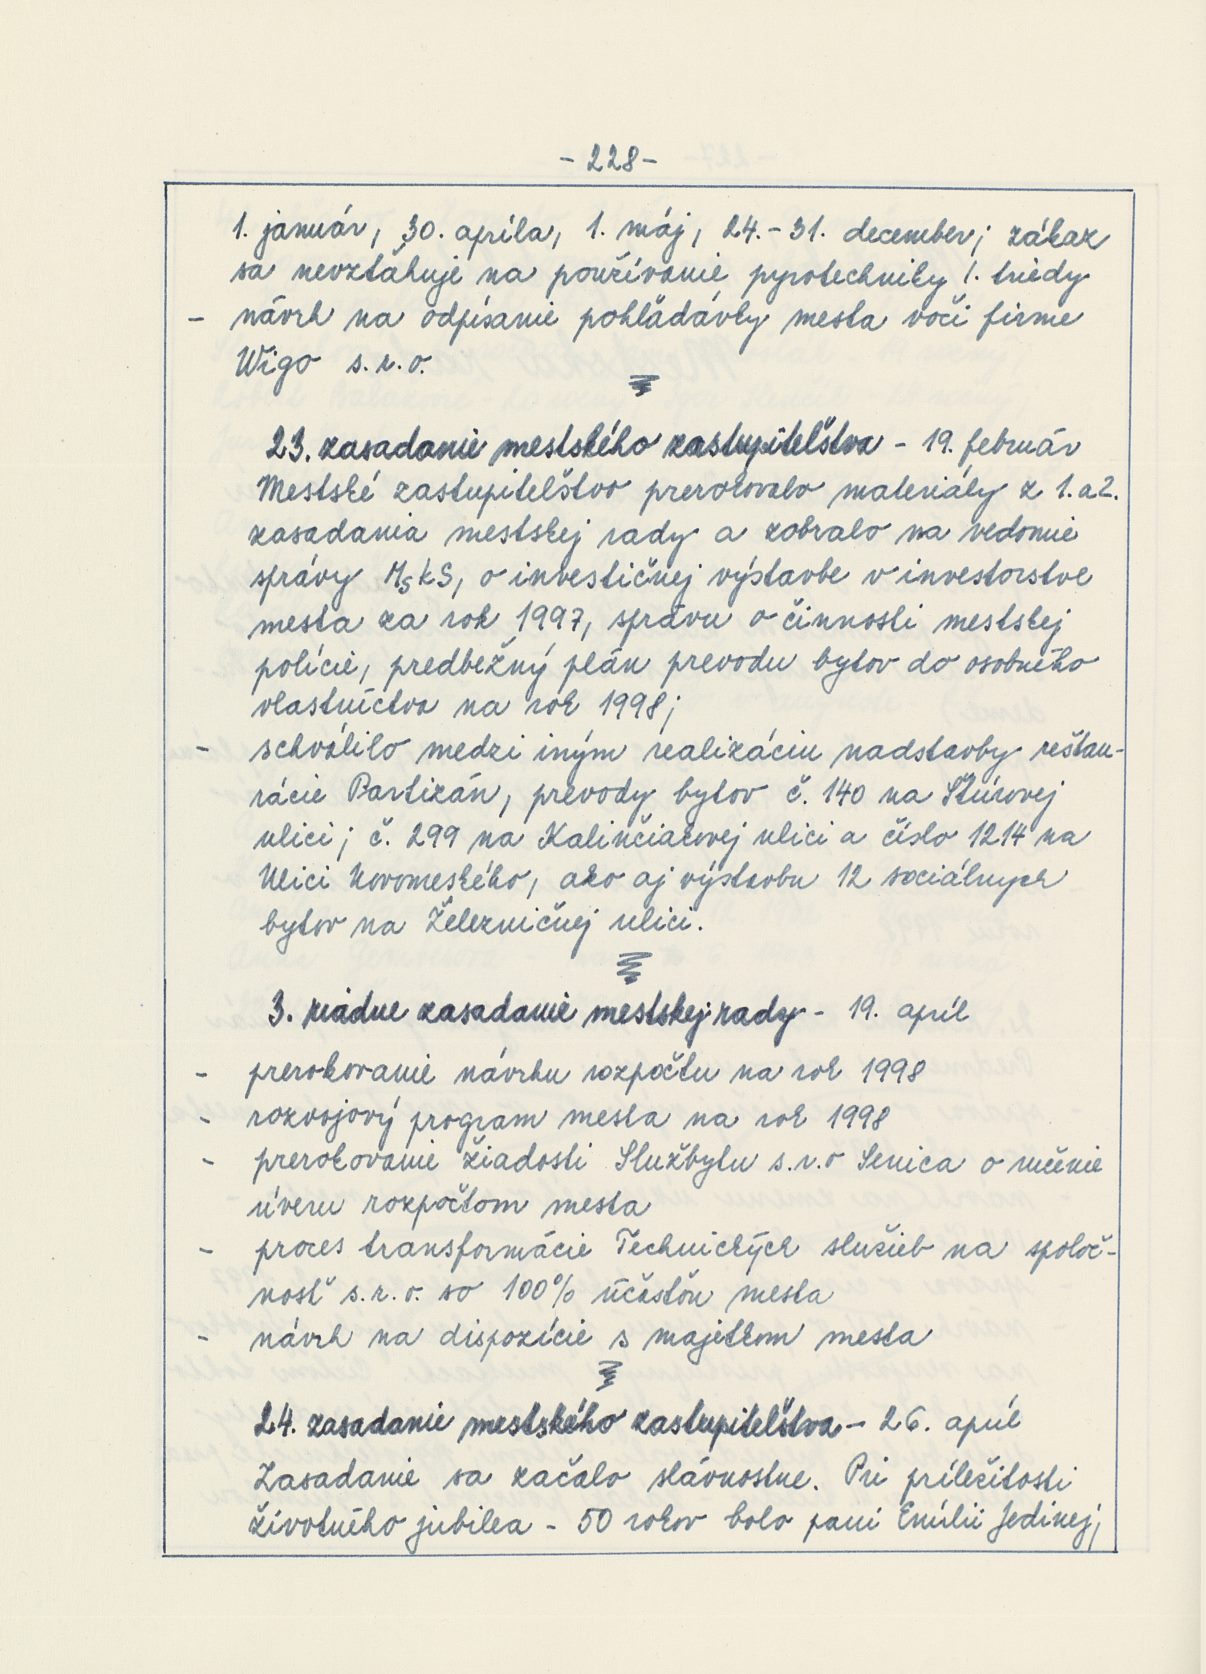 - 228 -
1. január, 30. apríla, 1. máj, 24. - 31. december; zákaz
sa nevzťahuje na používanie pyrotechniky 1. triedy
- návrh na odpísanie pohľadávky mesta voči firme
Wigo s.r.o.
23. zasadanie mestského zastupiteľstva - 19. február
Mestské zastupiteľstvo prerokovalo materiály z 1. a 2.
zasadania mestskej rady a zobralo na vedomie
správy MsKS, o investičnej výstavbe v investorstve
mesta za rok 1997, správu o činnosti mestskej
polície, predbežný plán prevodu bytov do osobného
vlastníctva na rok 1998;
- schválilo medzi iným realizáciu nadstavby reštau-
rácie Partizán, prevody bytov č. 140 na Štúrovej
ulici; č. 299 na Kalinčiakovej ulici a číslo 1214 na
Ulici Novomeského, ako aj výstavbu 12 sociálnych
bytov na Železničnej ulici.
3. riadne zasadanie mestskej rady - 19. apríl
- prerokovanie návrhu rozpočtu na rok 1998
- rozvojový program mesta na rok 1998
- prerokovanie žiadosti Službytu s.r.o Senica o ručenie
úveru rozpočtom mesta
- proces transformácie Technických služieb na spoloč-
nosť s.r.o. so 100% účasťou mesta
- návrh na dispozície s majetkom mesta
24. zasadanie mestského zastupiteľstva - 26. apríl
Zasadanie sa začalo slávnostne. Pri príležitosti
životného jubilea - 50 rokov bolo pani Emílii Jedinej,